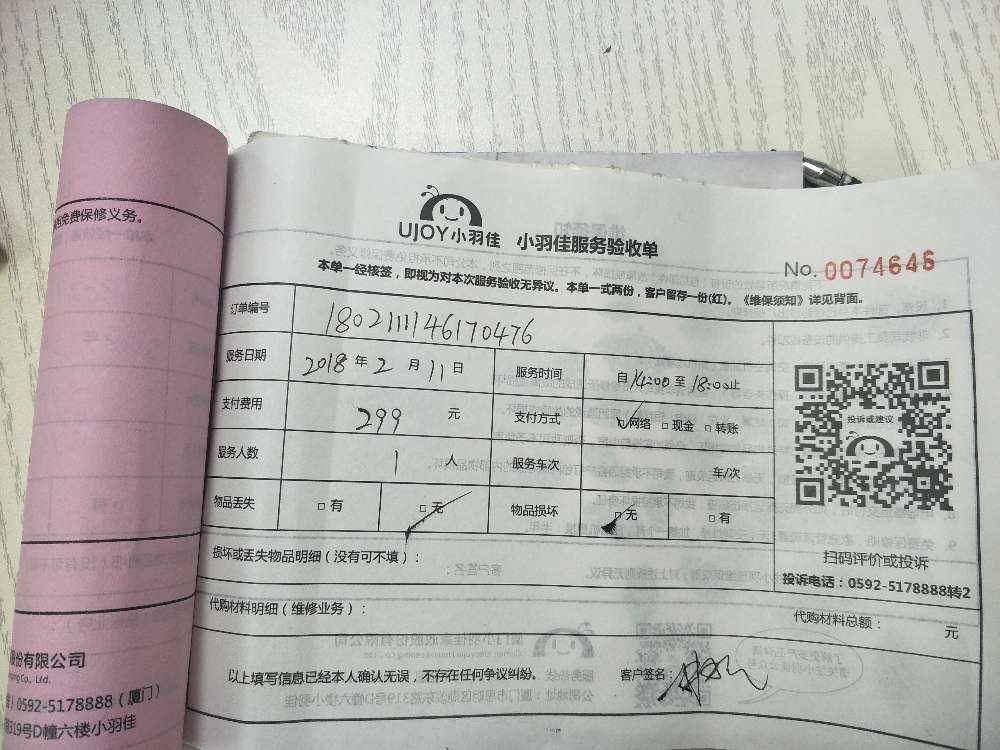 包免费保修义务。
UJOY小羽佳 小羽佳服务验收单
No. 0074646
本单一经核签，即视为对本次服务验收无异议。本单一式两份，客户留存一份(红)。《维保须知》详见背面。
订单编号 180211114617 0476
服务日期 2018 年 2 月 11 日 服务时间 自 14:00 至 18:00 止
支付费用 299 元 支付方式 □网络 □现金 □转账
服务人数 1 人 服务车次 车/次
物品丢失 □有 □无 物品损坏 □无 □有
投诉或建议
扫码评价或投诉
投诉电话：0592-5178888转2
损坏或丢失物品明细（没有可不填）：
代购材料明细（维修业务）： 代购材料总额： 元
以上填写信息已经本人确认无误，不存在任何争议纠纷。 客户签名：
股份有限公司
Co., Ltd.
0592-5178888（厦门）
319号D幢六楼小羽佳